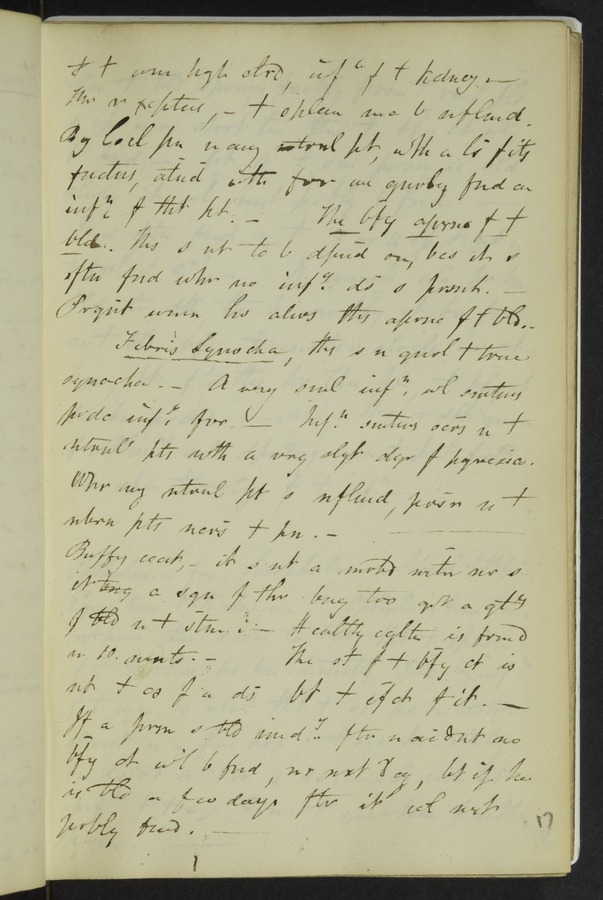 & + wm high clrd, inf n f + kidney. —
Thr r xcptus, — + spleen ma b nflamd.
By Local pn n any ntrnl prt, wth a ls f its
functns, atnd wth fvr we gnrly fnd an
infn f tht prt. — The bfy aprnc f +
bld. Ths s nt to b dpnd on, bcs it s
oftn fnd whr no infn ds s prsnt. —
Prgnt wmn hv alws ths aprnc f + bld. —
Febris Synocha, ths s n gnrl + true
synocha. — A very sml infn, wl smtms
prdc infn fvr — Infn smtms ocrs n +
ntrnl pts wth a vry slgt dgr f pyrexia.
Whr any ntrnl prt s nflmd, prsr n +
nbrn pts ncrs + pn. —
Buffy coat — it s nt a mrbd mtr nr s
it a sgn f thr bng too grt a qtty
f bld n + stm. — Healthy cgltn is frmd
n 10. mnts. — The st f + bfy ct is
nt + cs f a ds bt + efct f it. —
If a prsn s bld imdy ftr n acdnt no
bfy ct wl b fnd, nr nxt day, bt if he
is bld a few days ftr it wl mst
prbly fnd. —
17